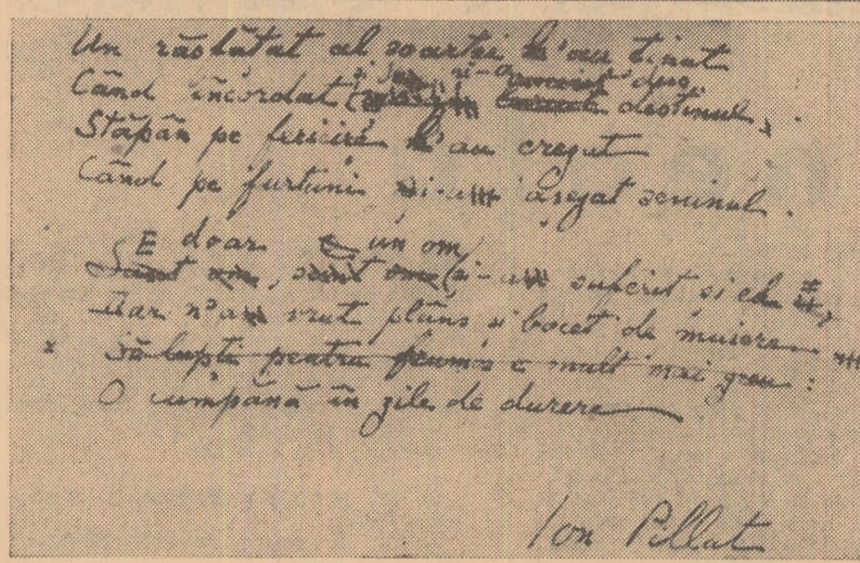 Un răsfătat al soartei l'au tinut
si și-a dus
Când încordat destinul,
Stăpân pe fericire l'au crezut
Când pe furtuni și-a așezat seninul.
E doar un om
și-a suferit și el,
Dar n'a vrut plâns și bocet de muiere
x Să lupți pentru frumos e mult mai greu:
O cumpănă în zile de durere
Ion Pillat